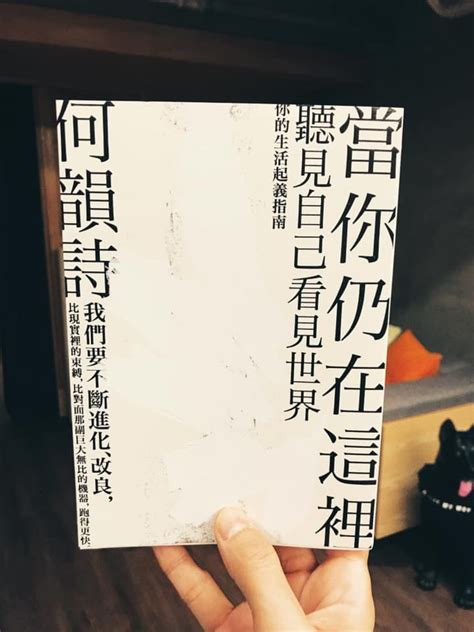 當你仍在這裡
聽見自己看見世界
你的生活起義指南
何韻詩
我們要不斷進化、改良，
比現實裡的束縛，比對面那副巨大無比的機器，跑得更快